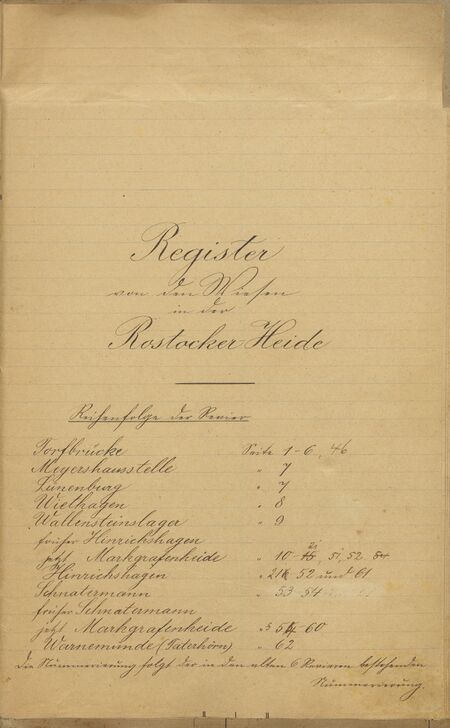 Register
von den Wiesen
in der
Rostocker Heide
Reihenfolge der Revier
Torfbrücke Seite 1-6, 46
Meyershausstelle " 7
Lünenburg " 7
Wiethagen " 8
Wallensteinslager " 9
früher Hinrichshagen
jetzt Markgrafenheide " 10 - 51, 52
Hinrichshagen 52 und 61
Schnatermann " 53-54
früher Schnatermann
jetzt Markgrafenheide - 60
Warnemünde (Taterhörn) " 62
Die Nummerierung folgt der in den alten 6 Revieren bestehenden
Nummerierung.